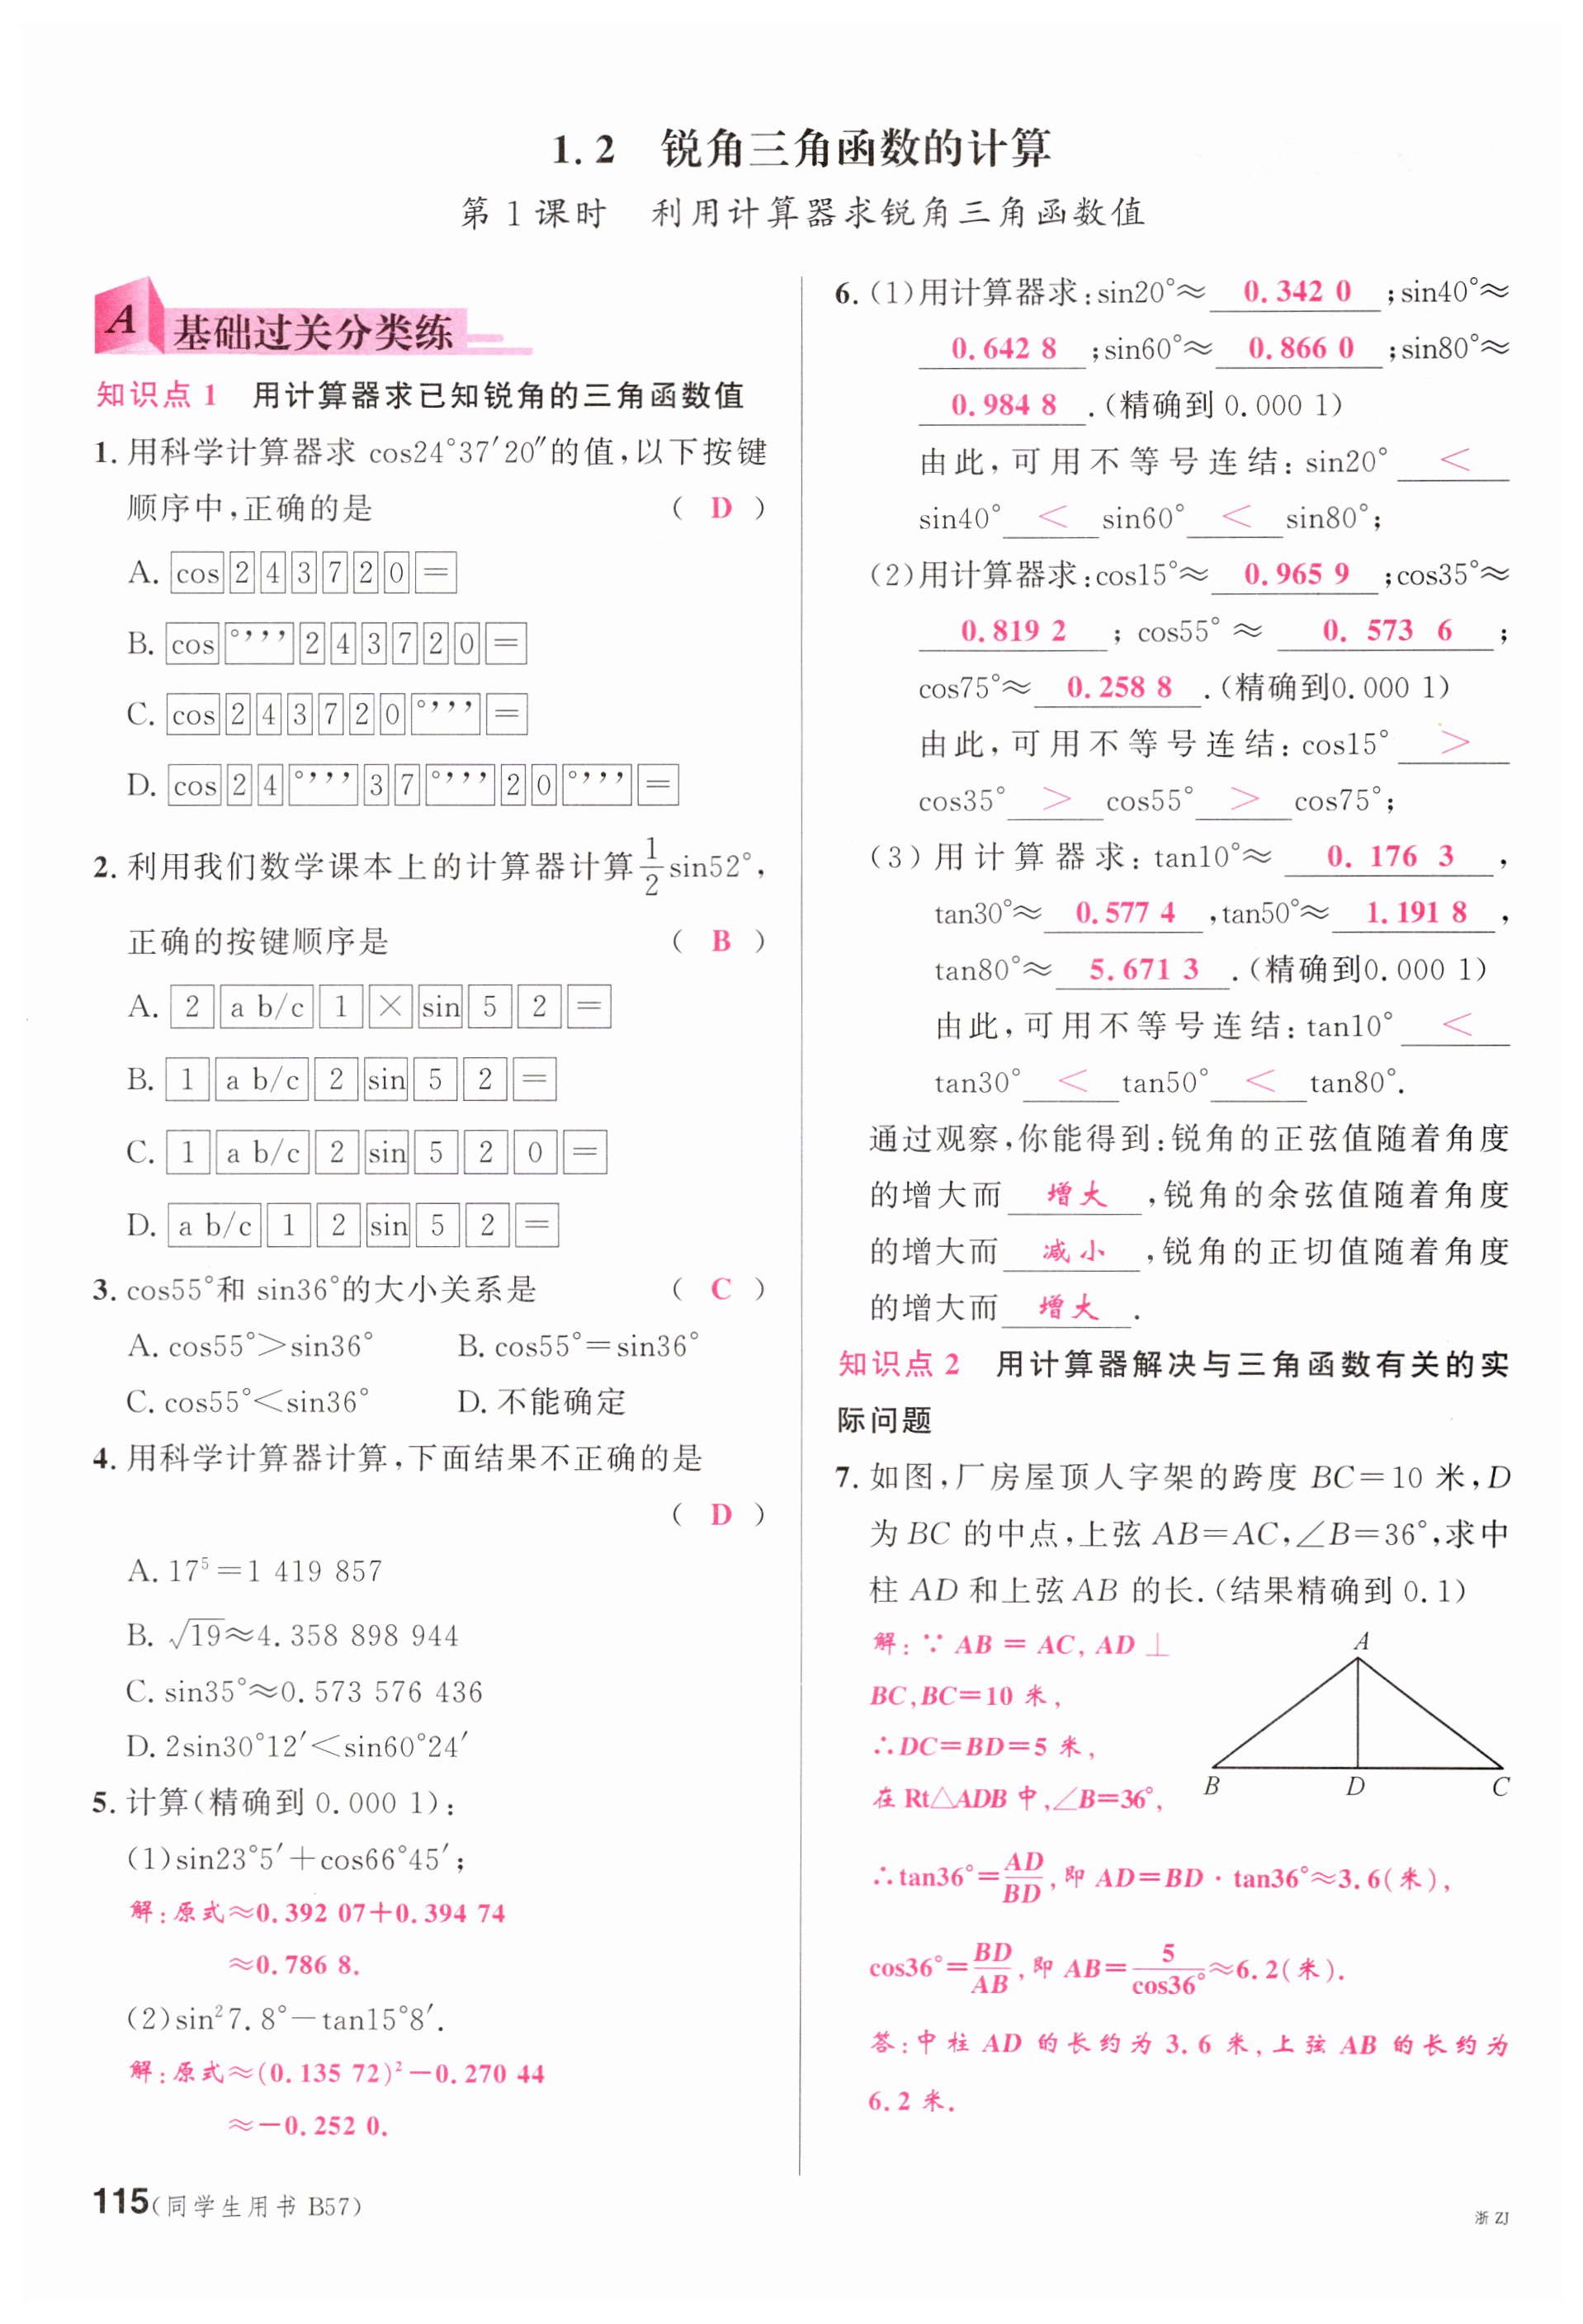 1.2 锐角三角函数的计算
第1课时 利用计算器求锐角三角函数值
A 基础过关分类练
知识点1 用计算器求已知锐角的三角函数值
1.用科学计算器求 cos24°37′20″的值,以下按键
顺序中,正确的是 ( D )
A. cos 2 4 3 7 2 0 =
B. cos °’’’ 2 4 3 7 2 0 =
C. cos 2 4 3 7 2 0 °’’’ =
D. cos 2 4 °’’’ 3 7 °’’’ 2 0 °’’’ =
2.利用我们数学课本上的计算器计算 1/2 sin52°,
正确的按键顺序是 ( B )
A. 2 a b/c 1 × sin 5 2 =
B. 1 a b/c 2 sin 5 2 =
C. 1 a b/c 2 sin 5 2 0 =
D. a b/c 1 2 sin 5 2 =
3.cos55°和 sin36°的大小关系是 ( C )
A.cos55°>sin36° B.cos55°=sin36°
C.cos55°<sin36° D.不能确定
4.用科学计算器计算,下面结果不正确的是
( D )
A.17⁵=1 419 857
B.√19≈4.358 898 944
C.sin35°≈0.573 576 436
D.2sin30°12′<sin60°24′
5.计算(精确到 0.000 1):
(1)sin23°5′+cos66°45′;
解:原式≈0.392 07+0.394 74
≈0.786 8.
(2)sin²7.8°-tan15°8′.
解:原式≈(0.135 72)²-0.270 44
≈-0.252 0.
115(同学生用书 B57)
6.(1)用计算器求:sin20°≈ 0.342 0 ;sin40°≈
0.642 8 ;sin60°≈ 0.866 0 ;sin80°≈
0.984 8 .(精确到 0.000 1)
由此,可用不等号连结:sin20° <
sin40° < sin60° < sin80°;
(2)用计算器求:cos15°≈ 0.965 9 ;cos35°≈
0.819 2 ; cos55° ≈ 0.573 6 ;
cos75°≈ 0.258 8 .(精确到0.000 1)
由此,可用不等号连结:cos15° >
cos35° > cos55° > cos75°;
(3)用计算器求:tan10°≈ 0.176 3 ,
tan30°≈ 0.577 4 ,tan50°≈ 1.191 8 ,
tan80°≈ 5.671 3 .(精确到0.000 1)
由此,可用不等号连结:tan10° <
tan30° < tan50° < tan80°.
通过观察,你能得到:锐角的正弦值随着角度
的增大而 增大 ,锐角的余弦值随着角度
的增大而 减小 ,锐角的正切值随着角度
的增大而 增大 .
知识点2 用计算器解决与三角函数有关的实
际问题
7.如图,厂房屋顶人字架的跨度 BC=10 米,D
为 BC 的中点,上弦 AB=AC,∠B=36°,求中
柱 AD 和上弦 AB 的长.(结果精确到 0.1)
解:∵ AB = AC, AD ⊥
BC,BC=10 米,
∴DC=BD=5 米,
在 Rt△ADB 中,∠B=36°,
A
B D C
∴tan36°=AD/BD,即 AD=BD·tan36°≈3.6(米),
cos36°=BD/AB,即 AB=5/cos36°≈6.2(米).
答:中柱 AD 的长约为 3.6 米,上弦 AB 的长约为
6.2 米.
浙 ZJ